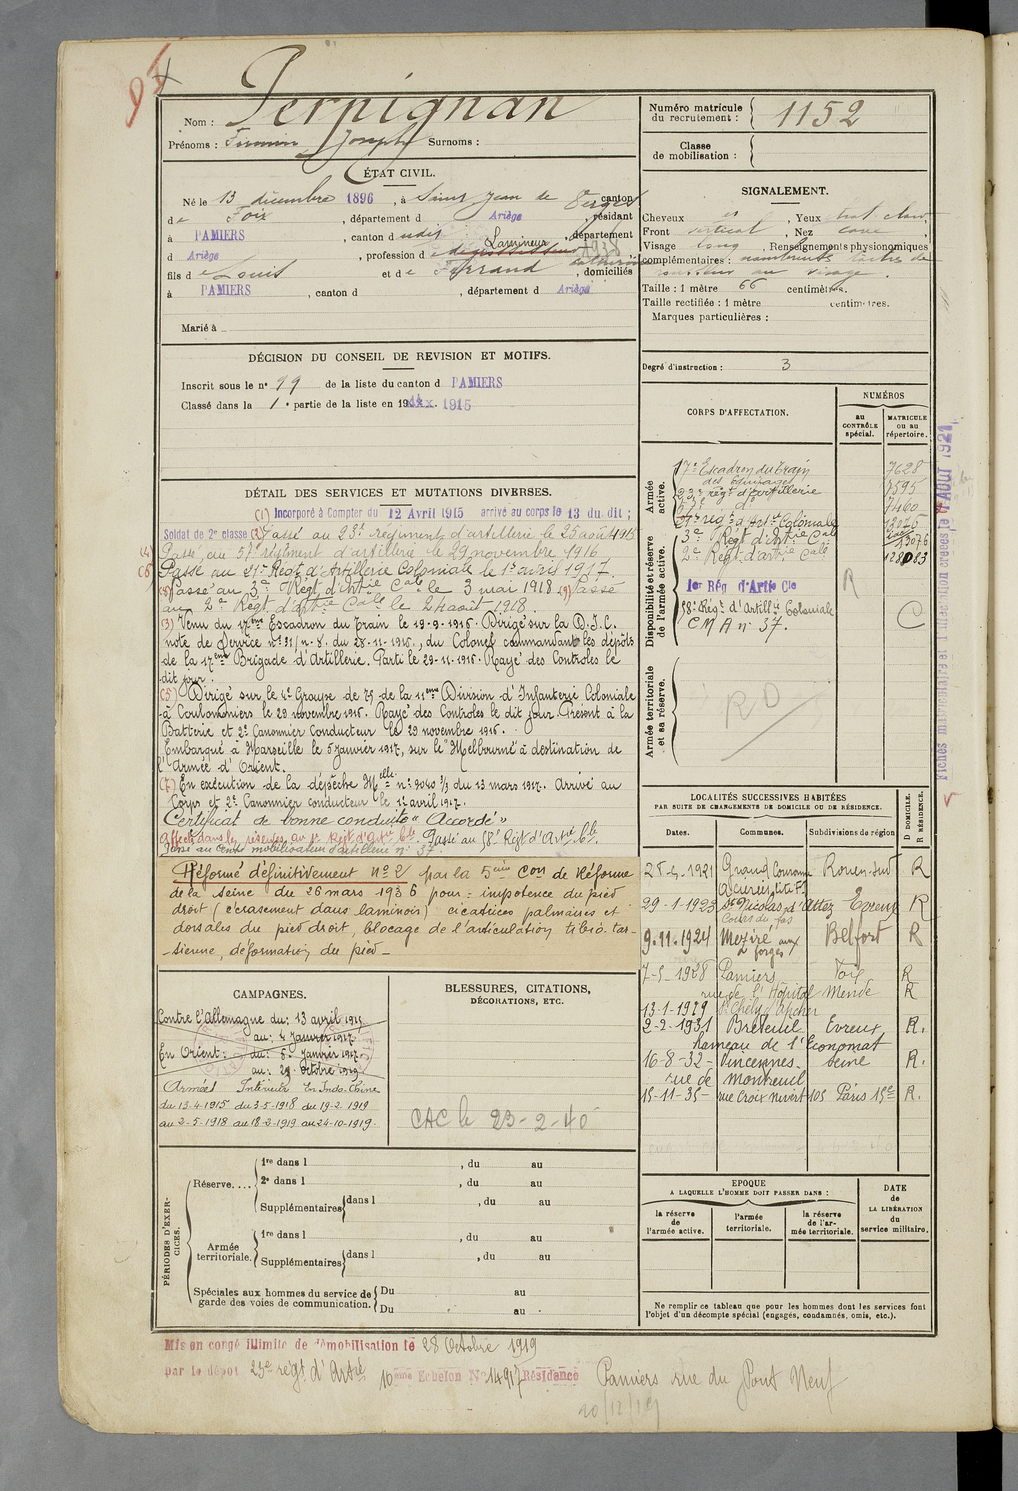 Nom : Perpignan
Prénoms : Firmin Joseph Surnoms :
ÉTAT CIVIL.
Né le 13 décembre 1896, à Saint Jean de Verges canton
de Foix, département d Ariège, résidant
à PAMIERS, canton dudit, département
d Ariège, profession de Lamineur 1938
fils de Louis et de Ferrand Catherine, domiciliés
à PAMIERS, canton d, département d Ariège
Marié à
DÉCISION DU CONSEIL DE REVISION ET MOTIFS.
Inscrit sous le n° 99 de la liste du canton d PAMIERS
Classé dans la 1e partie de la liste en 1915
DÉTAIL DES SERVICES ET MUTATIONS DIVERSES.
(1) Incorporé à Compter du 12 Avril 1915 arrivé au corps le 13 du dit ;
Soldat de 2e classe (2) Passé au 23e régiment d'artillerie le 25 août 1915
(4) Passé au 57e régiment d'artillerie le 29 novembre 1916
(6) Passé au 21e Régt d'Artillerie Coloniale le 1er avril 1917.
(8) Passé au 3e Régt d'Artie Cale le 3 mai 1918 (9) Passé
au 2e Régt d'artie Cale le 24 août 1918.
(3) Venu du 17eme Escadron du Train le 19-9-1916. Dirigé sur la D.I.C.
note de Service n° 31/n-8. du 28-11-1916, du Colonel commandant les dépôts
de la 17eme Brigade d'Artillerie. Parti le 29-11-1916. Rayé des Controles le
dit jour.
(5) Dirigé sur le 4e Groupe de 75 de la 11eme Division d'Infanterie Coloniale
à Coulommiers le 29 novembre 1916. Rayé des Controles le dit jour. Présent à la
Batterie et 2e Canonnier Conducteur le 29 novembre 1916.
Embarqué à Marseille le 5 janvier 1917, sur le "Melbourne" à destination de
l'Armée d'Orient.
(7) En exécution de la dépêche Melle n° 9040 3/8 du 13 mars 1917. Arrivé au
Corps et 2e Canonnier conducteur le 1er avril 1917.
Certificat de bonne conduite "Accordé"
Affecté dans la réserve au 1er Régt d'Artie Cle. Passé au 58e Régt d'Artie Cle.
Passé au Centre mobilisateur d'artillerie n° 37.
Réformé définitivement n° 2 par la 5eme Con de Réforme
de la Seine du 26 mars 1936 pour : impotence du pied
droit (écrasement dans laminoir) cicatrices palmaires et
dorsales du pied droit, blocage de l'articulation tibio-tar-
-sienne, déformation du pied -
CAMPAGNES.
Contre l'Allemagne du : 13 avril 1915
au : 4 Janvier 1917.
En Orient : du : 5 Janvier 1917
au : 24 octobre 1919
Armées Intérieur En Indo-Chine
du 13-4-1915 du 3-5-1918 du 19-2-1919
au 2-5-1918 au 18-2-1919 au 24-10-1919.
BLESSURES, CITATIONS,
DÉCORATIONS, ETC.
CAC le 23-2-40
PÉRIODES D'EXERCICES.
Réserve....
1re dans l , du au
2e dans l , du au
Supplémentaires dans l , du au
Armée territoriale.
1re dans l , du au
Supplémentaires dans l , du au
Spéciales aux hommes du service de
garde des voies de communication.
Du au
Du au
Mis en congé illimité de démobilisation le 28 Octobre 1919
par le dépôt 23e régt d'Artie 16eme Echelon N° 14917 Résidence Pamiers rue du Pont Neuf
20/12/19
Numéro matricule
du recrutement : 1152
Classe
de mobilisation :
SIGNALEMENT.
Cheveux , Yeux
Front vertical, Nez cave,
Visage long, Renseignements physionomiques
complémentaires : nombreuses tâches de
rousseur au visage.
Taille : 1 mètre 66 centimètres.
Taille rectifiée : 1 mètre centimètres.
Marques particulières :
Degré d'instruction : 3
CORPS D'AFFECTATION.
NUMÉROS
au CONTRÔLE spécial.
MATRICULE ou au répertoire.
Armée active.
17e Escadron du Train
des Equipages 7628
23e régt d'artillerie 7595
57e d° 7460
21e régt d'Artie Coloniale 13076
3e Régt d'Artie Cale 13076
2e Régt d'artie Cale 128083
Disponibilité et réserve de l'armée active.
1er Rég d'Artie Cle R
58e Régt d'Artille Coloniale C
C M A n° 37.
Armée territoriale et sa réserve.
R D
Fiches matriculaire et 1 mécanon créées le AOUT 1921
LOCALITÉS SUCCESSIVES HABITÉES
PAR SUITE DE CHANGEMENTS DE DOMICILE OU DE RÉSIDENCE.
Dates. Communes. Subdivisions de région D DOMICILE. R RÉSIDENCE.
25-4-1921 Grand Couronne Rouen-Sud R
29-1-1923 St Nicolas d'Attez Evreux R
9.11.1924 Méziré aux forges Belfort R
7-5-1928 Pamiers Foix R
rue de l'Hôpital Mende R
13-1-1929 St Chély d'Apcher
2-2-1931 Breteuil Evreux R.
Hameau de l'Economat
16-8-32- Vincennes- Seine R.
rue de Montreuil
15-11-35- rue Croix Nivert 105 Paris 15e R.
EPOQUE
A LAQUELLE L'HOMME DOIT PASSER DANS :
la réserve de l'armée active.
l'armée territoriale.
la réserve de l'armée territoriale.
DATE de LA LIBÉRATION du service militaire.
Ne remplir ce tableau que pour les hommes dont les services font
l'objet d'un décompte spécial (engagés, condamnés, omis, etc.).